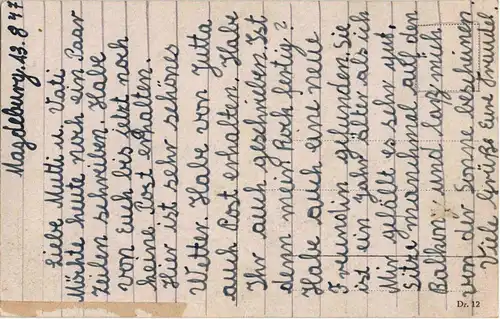 Magdeburg, 13. 8 47
Liebe Mutti u. Vati
Möchte heute noch ein Paar
Zeilen schreiben. Habe
von Euch bis jetzt noch
keine Post erhalten.
Hier ist sehr schönes
Wetter. Habe von Jutta
auch Post erhalten. Habe
Ihr auch geschrieben. Ist
denn mein Rock fertig?
Habe auch eine neue
Freundin gefunden. Sie
ist ein Jahr älter als ich
Mir gefällt es sehr gut.
Sitze manchmal auf den
Balkon und laß mich
von der Sonne bescheinen.
Viele Grüße Eure Traudel
Dr. 12